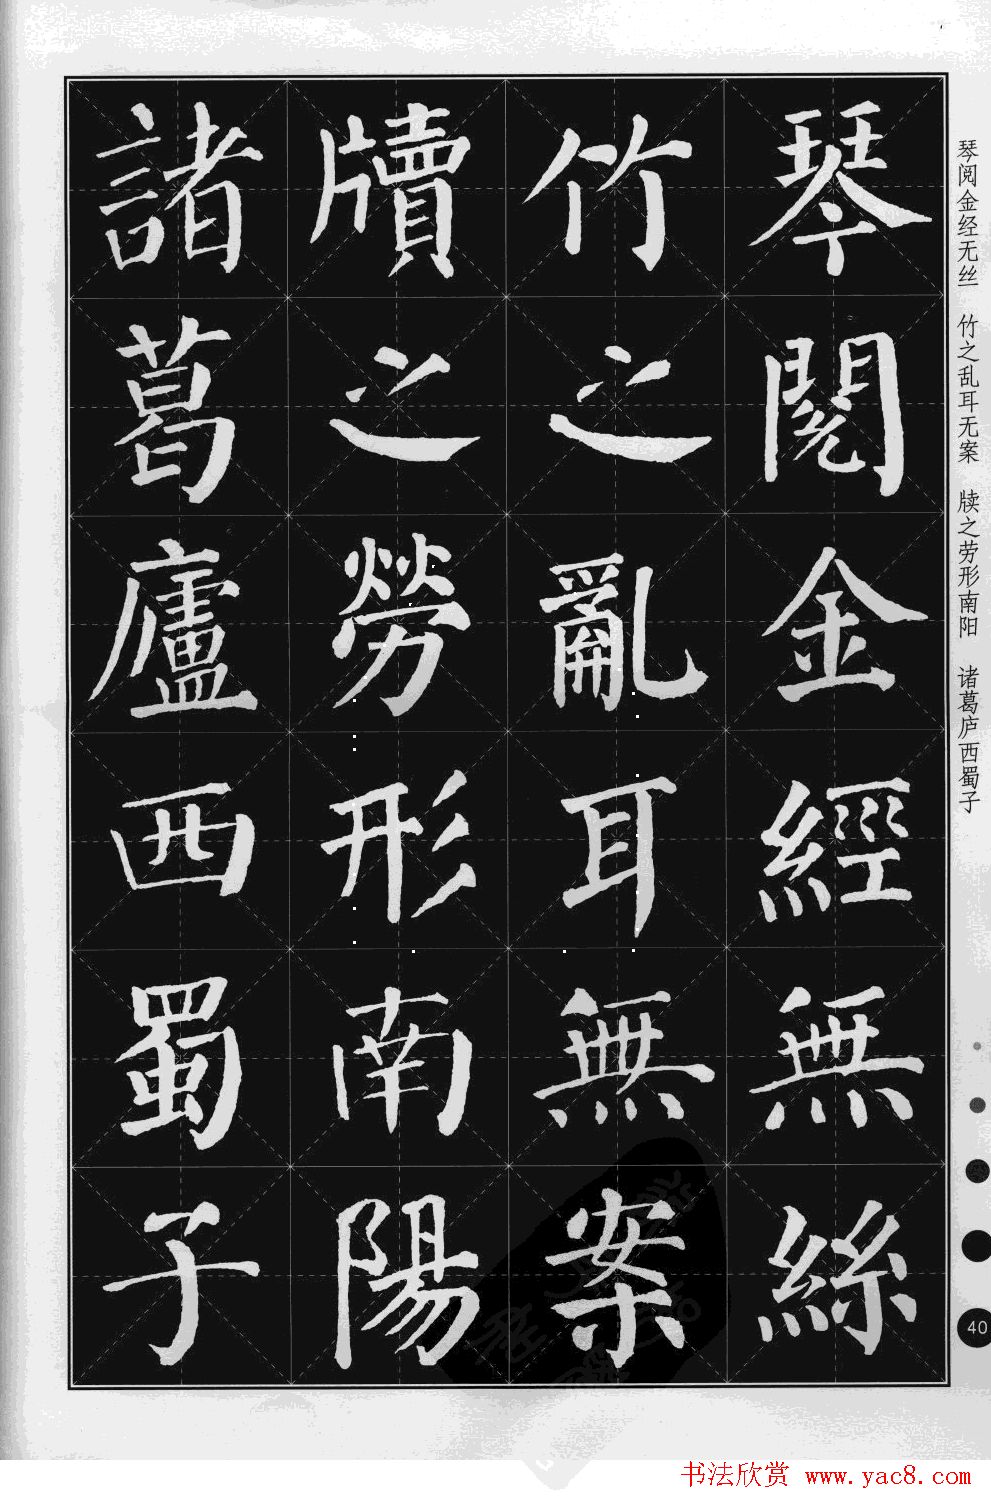 琴閱金經無絲
竹之亂耳無案
牘之勞形南陽
諸葛廬西蜀子
琴阅金经无丝 竹之乱耳无案 牍之劳形南阳 诸葛庐西蜀子
40
书法欣赏 www.yac8.com